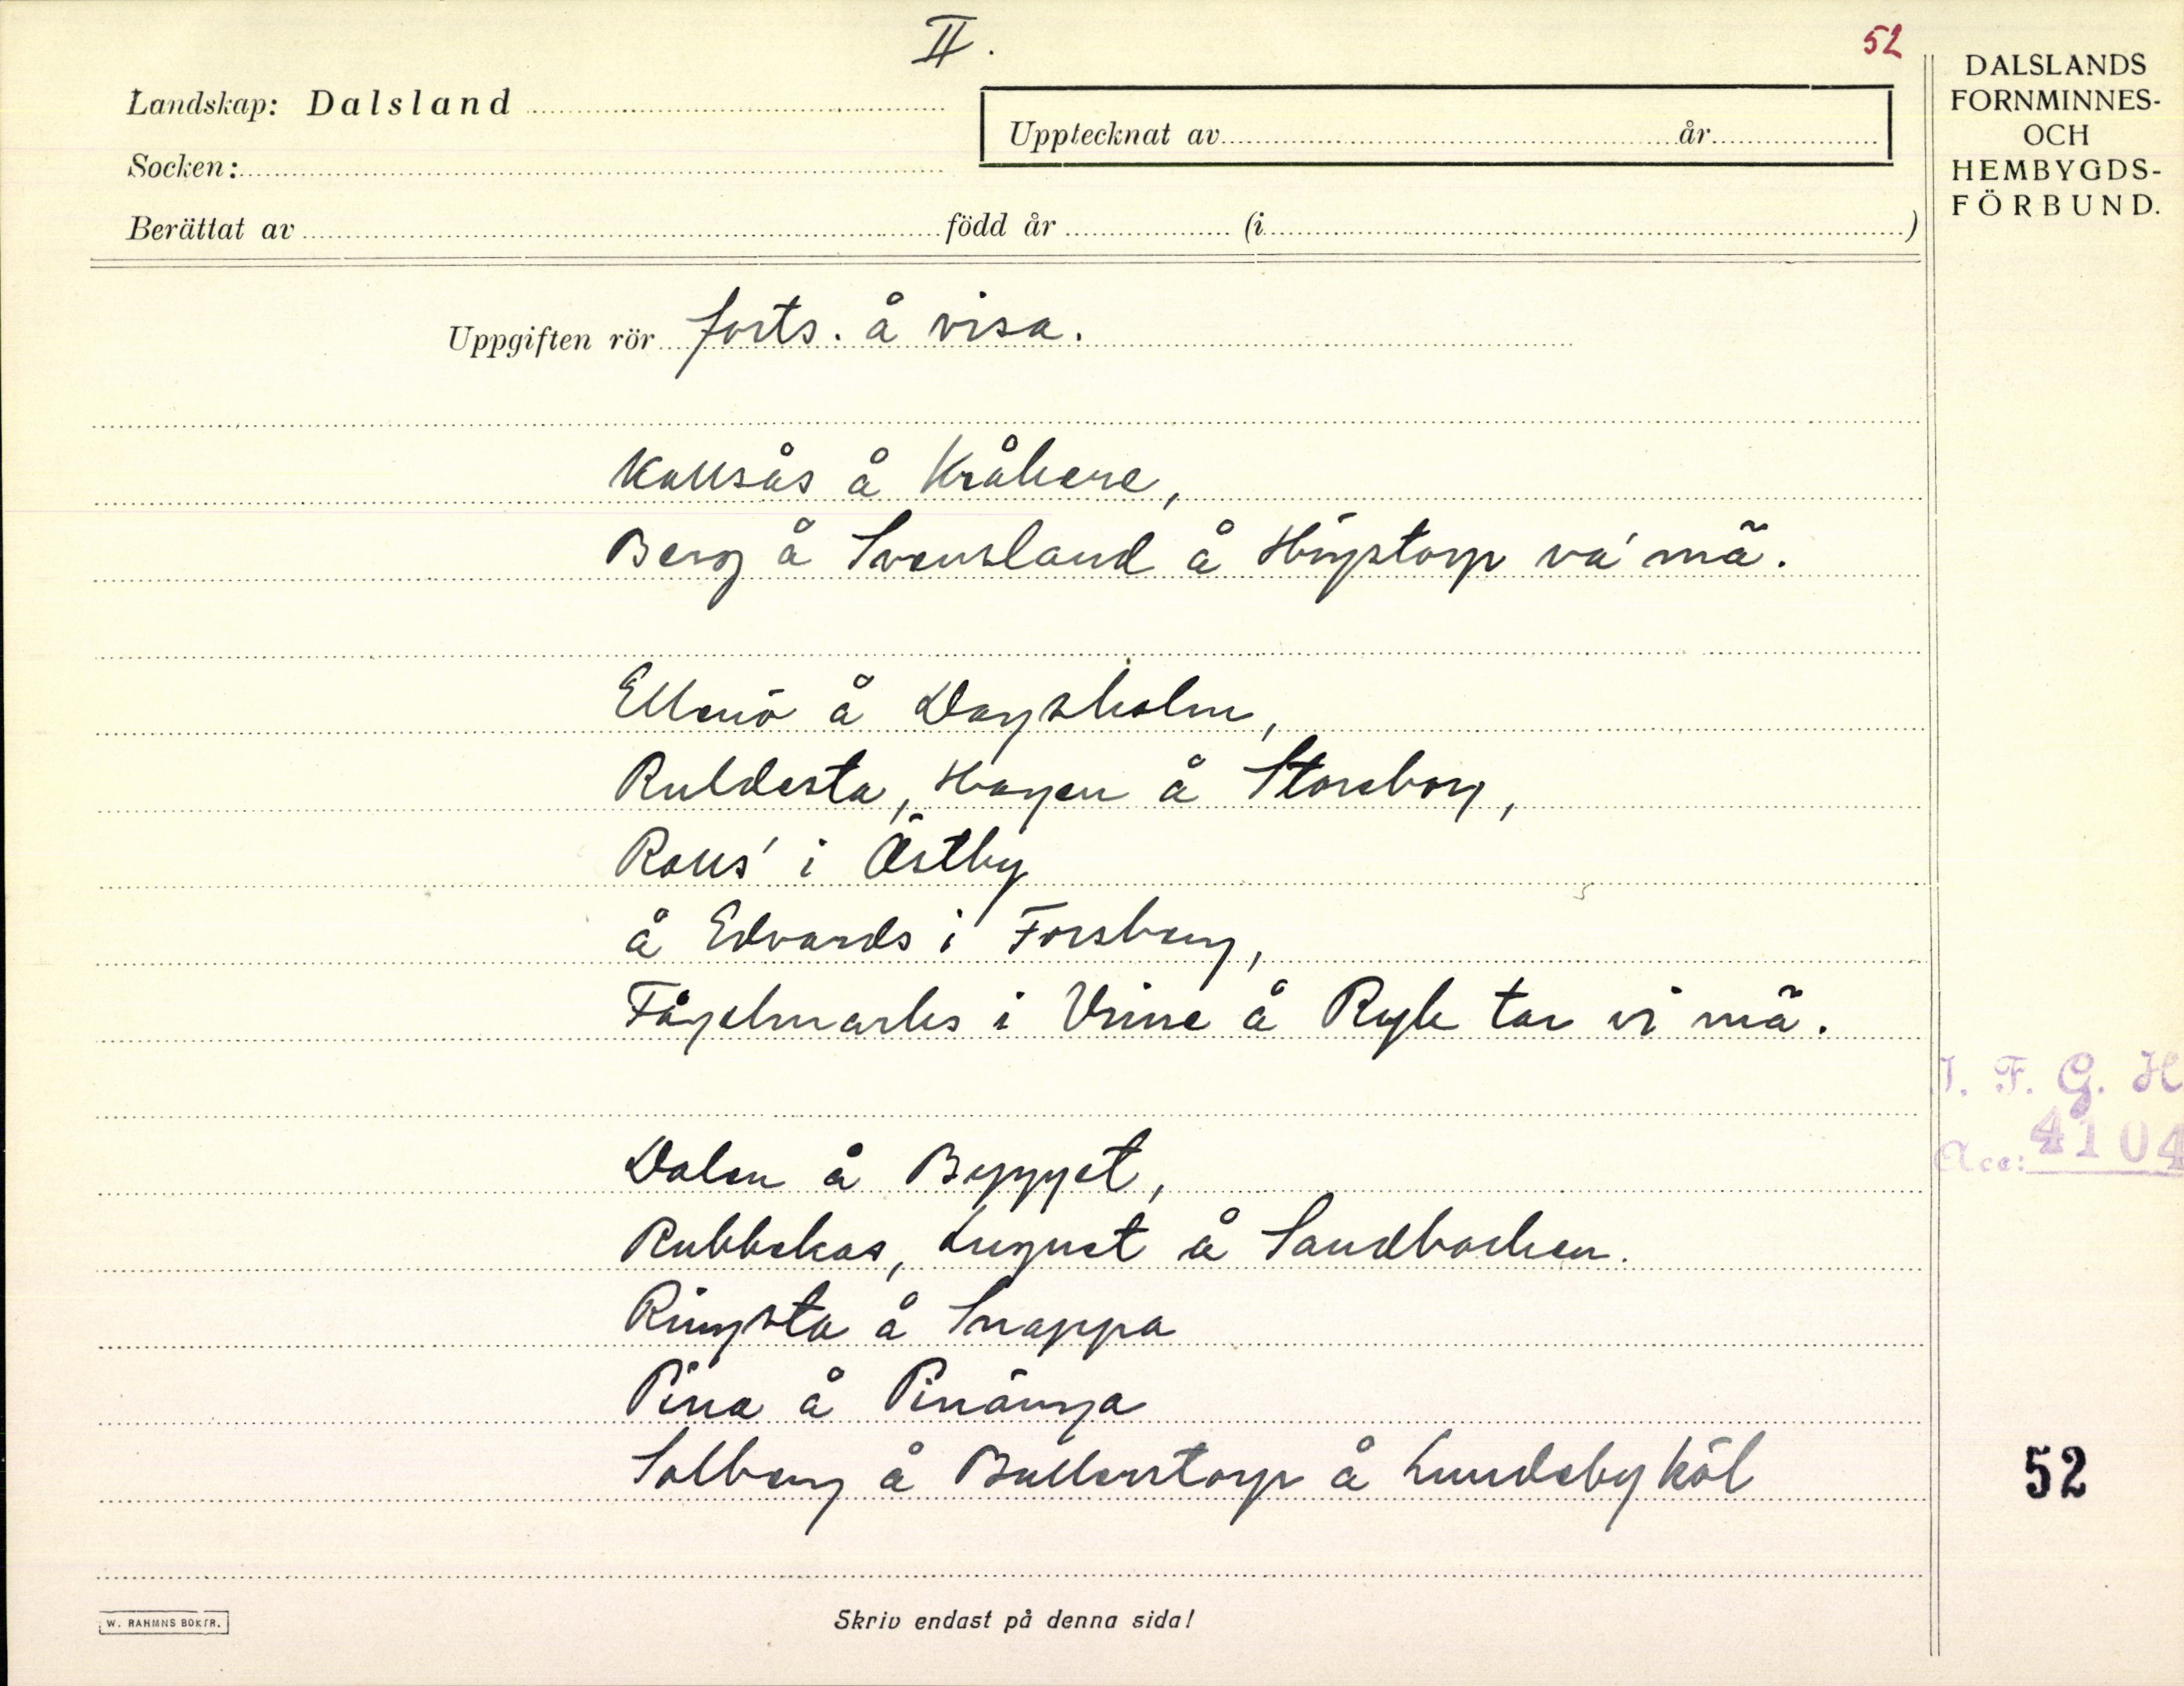 II.
52
Landskap: Dalsland
Upptecknat av år
Socken:
Berättat av född år (i )
DALSLANDS
FORNMINNES-
OCH
HEMBYGDS-
FÖRBUND.
Uppgiften rör forts. å visa.
Kallsås å Kråkene,
Berg å Svensland å Högstorp va' mä.
Ellenö å Dagsholm,
Ruldesta, Hagen å Storeborg,
Ralls' i Östby
å Edvards i Forsberg,
Fågelmarks i Vrine å Ryk tar vi mä.
Dalen å Bygget,
Rubbekas, August å Sandbacken.
Ringsta å Snappa
Pina å Pinänga
Solberg å Bullerstorp å Lundeby köl
J. F. G. H
Acc: 4104
52
W. RAHMNS BOKTR.
Skriv endast på denna sida!